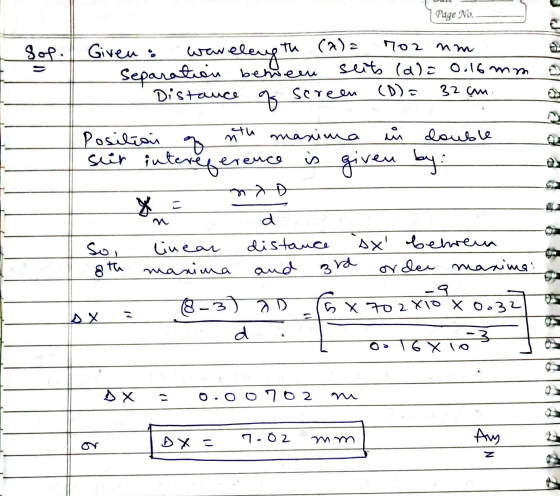 Page No.
Sol. Given: wavelength (λ) = 702 nm
Separation between slits (d) = 0.16 mm
Distance of screen (D) = 32 cm.
Position of nth maxima in double
slit intereference is given by:
Xn = nλD / d
So, linear distance 'ΔX' between
8th maxima and 3rd order maxima:
ΔX = (8-3) λD / d = [5 × 702×10⁻⁹ × 0.32 / 0.16×10⁻³]
ΔX = 0.00702 m
or ΔX = 7.02 mm Ans